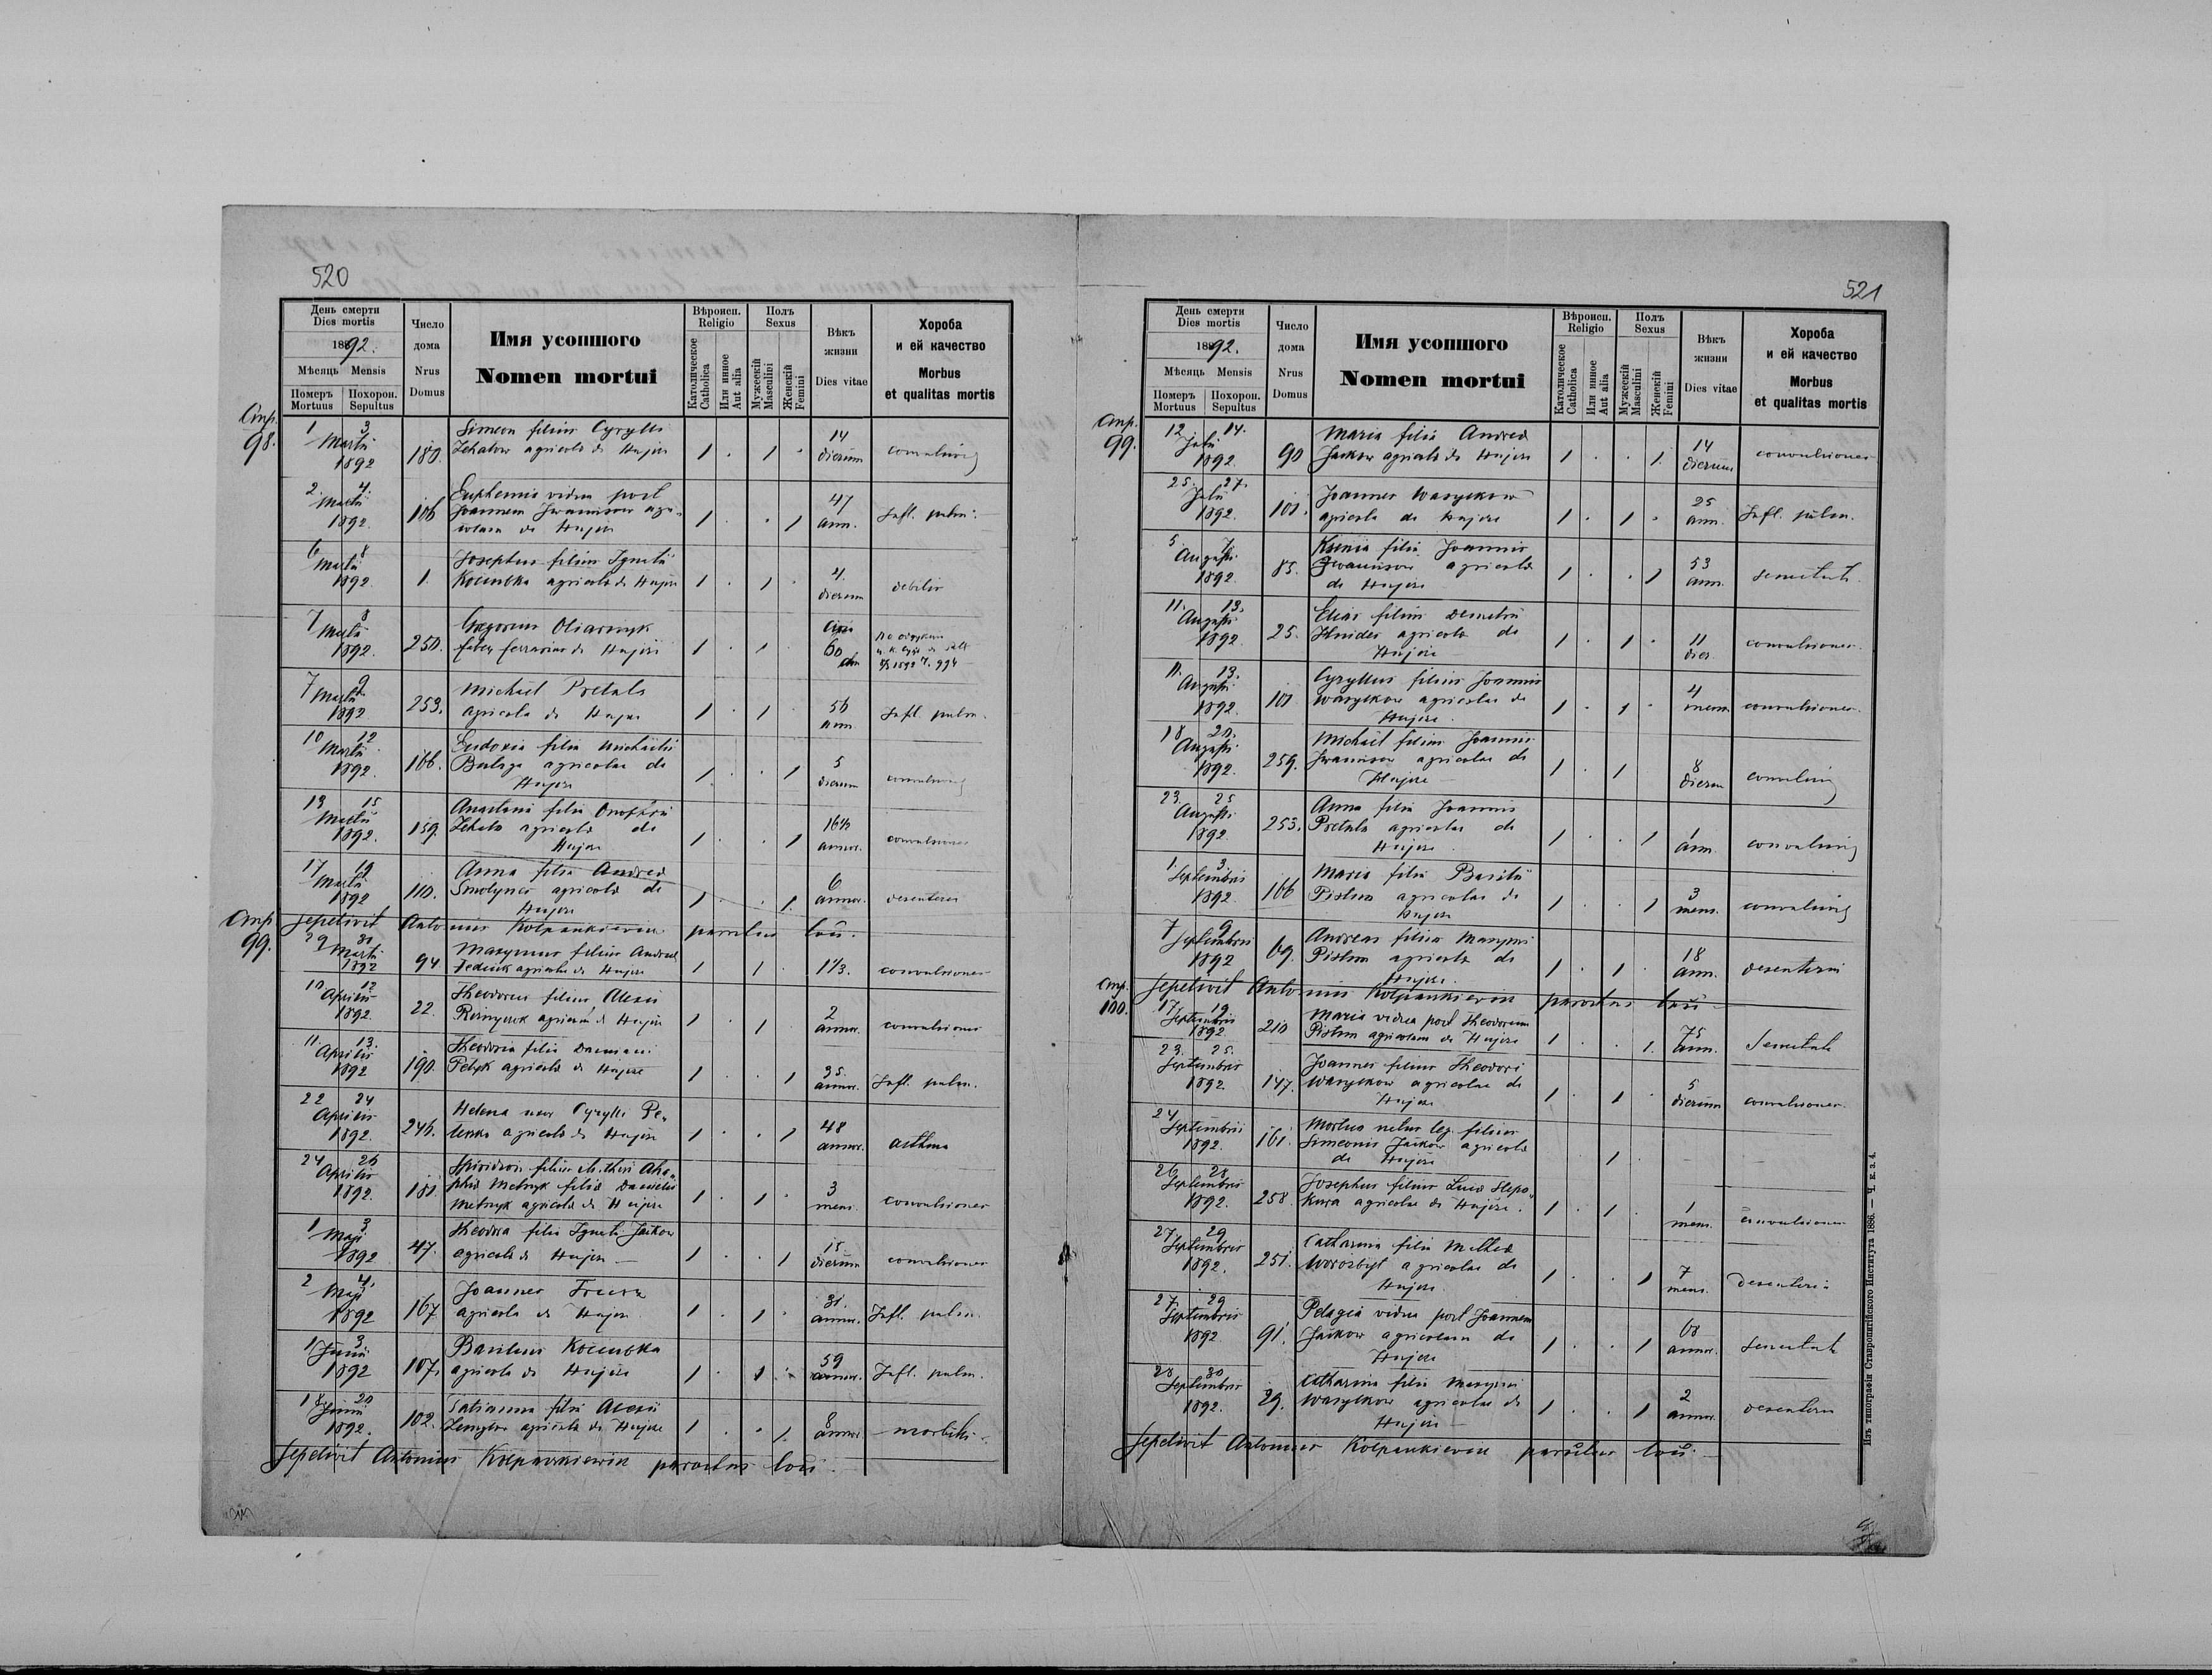 520
День смерти
Dies mortis
1892.
Мѣсяць Mensis
Померъ Mortuus
Похорон. Sepultus
Число дома
Nrus Domus
Имя усопшого
Nomen mortui
Вѣроисп.
Religio
Католическое Catholica
Или инное Aut alia
Полъ
Sexus
Мужескій Masculini
Женскій Femini
Вѣкъ жизни
Dies vitae
Хороба
и ей качество
Morbus
et qualitas mortis
Стр. 98.
1 3 Simeon filius Cyrylli
Martii 1892 180. agricola de Hujcze 1 . 1 . 14 dierum convulsiones
2. 4. Euphemia vidua post
Martii 1892. 106 Joannem Iwanisow agri-
colam de Hujcze 1 . . 1 47 ann. Infl. pulm.
6 8 Josephus filius Ignatii
Martii 1892. 1. Kociubka agricola de Hujcze 1 . 1 . 4. dierum debilis
7 8 Gregorius Oliarnyk
Martii 1892. 250. faber ferrarius de Hujcze 1 . 1 . circa 60 ann
7 9 Michael Pretala
Martii 1892 253. agricola de Hujcze 1 . 1 . 56 ann. Infl. pulm.
10 12 Eudoxia filia Michaelis
Martii 1892. 166. agricolae de
Hujcze 1 . . 1 5 dierum convulsiones
13 15 Anastasia filia Onofrii
Martii 1892. 159. agricola de
Hujcze 1 . . 1 annor. convulsiones
17 19 Anna filia Andrea
Martii 1892 110. Smolynec agricola de
Hujcze 1 . . 1. 6 annor. desenteria
Стр. 99.
Sepelivit Antonius Kolpankiewicz parochus loci.
29 31 Maxymus filius Andrea
Martii 1892 94 Fediuk agricola de Hujcze 1 1 . 1 1/3. convulsiones
10 12 Theodorus filius Alexii
Aprilis 1892. 22. agricola de Hujcze 1 . 1 . 2 annor. convulsiones
11. 13. Theodosia filia Damiani
Aprilis 1892 190. Petyk agricola de Hujcze 1 . . 1 35. annor. Infl. pulm.
22 24 Helena uxor Cyrylli Pe-
Aprilis 1892. 246. agricola de Hujcze 1 . . 1 48 annor. asthma
24 26 Spiridion filius
Aprilis 1892. 180. Melnyk filia Danielis
Melnyk agricola de Hujcze 1 . 1 . 3 mens. convulsiones
1 3 Theodora filia Ignatii Jaikow
Maji 1892 47. agricola de Hujcze 1 . . 1 15 dierum convulsiones
2 4. Joannes
Maji 1892 167 agricola de Hujcze 1 . 1 . 31. annor. Infl. pulm.
1 3 Basilius Kociubka
Junii 1892 107. agricola de Hujcze 1 . 1 . 59 annor. Infl. pulm.
18 20 Tatianna filia Alexii
Junii 1892. 102. agricola de Hujcze 1 . . 1. 8 annor. morbilli
Sepelivit Antonius Kolpankiewicz parochus loci.
521
День смерти
Dies mortis
1892.
Мѣсяць Mensis
Померъ Mortuus
Похорон. Sepultus
Число дома
Nrus Domus
Имя усопшого
Nomen mortui
Вѣроисп.
Religio
Католическое Catholica
Или инное Aut alia
Полъ
Sexus
Мужескій Masculini
Женскій Femini
Вѣкъ жизни
Dies vitae
Хороба
и ей качество
Morbus
et qualitas mortis
Стр. 99.
12 14. Maria filia Andrea
Julii 1892. 90 Jaikow agricola de Hujcze 1 . . 1. 14 dierum convulsiones
25. 27. Joannes Wasylkow
Julii 1892. 101. agricola de Hujcze 1 . 1 . 25 ann. Infl. pulm.
5 7. Ksenia filia Joannis
Augusti 1892. 85. Iwanisow agricola
de Hujcze 1 . . 1 53 ann. senectute
11. 13. Elias filius Demetrii
Augusti 1892. 25. agricola de
Hujcze 1 . 1 . 11 dier. convulsiones
11. 13. Cyryllus filius Joannis
Augusti 1892. 101 Wasylkow agricolae de
Hujcze. 1 . 1 . 4 mens convulsiones
18 20. Michael filius Joannis
Augusti 1892. 259. Iwanisow agricolae de
Hujcze 1 . 1 8 dierum convulsiones
23. 25 Anna filia Joannis
Augusti 1892 253. Pretala agricolae de
Hujcze. 1 . . 1 1 ann. convulsiones
1. 3. Maria filia Basilii
Septembris 1892 166 Pistun agricolae de
Hujcze 1 . . 1 3 mens. convulsiones
7 9 Andreas filius Maxymi
Septembris 1892 69. Pistun agricola de
Hujcze. 1 . 1 . 18 ann. desenteria
Стр. 100.
Sepelivit Antonius Kolpankiewicz parochus loci
17 19 Maria vidua post Theodorum
Septembris 1892 210 Pistun agricolam de Hujcze 1 . . 1. 75 ann. Senectute
23. 25. Joannes filius Theodori
Septembris 1892. 147. Wasylkow agricolae de
Hujcze 1 . 1 . 5 dierum convulsiones
24 Mortuo natus leg. filius
Septembris 1892. 161. Simeonis Jaikow agricola
de Hujcze 1
26 28 Josephus filius
Septembris 1892. 258. agricolae de Hujcze. 1 . 1 . 1 mens. convulsiones
27 29 Catharina filia
Septembris 1892. 251. Worosbyt agricolae de
Hujcze. 1 . . 1 7 mens. desenteria
27 29 Pelagia vidua post Joannem
Septembris 1892 91. Jaikow agricolam de
Hujcze 1 . . 1 68 annor. senectute
28 30 Catharina filia Maxymi
Septembris 1892. 29. Wasylkow agricolae de
Hujcze 1 . . 1 2 annor. desenteria
Sepelivit Antonius Kolpankiewicz parochus loci.
Изъ типографіи Ставропигійского Института 1886. — Ч. к. з. 4.